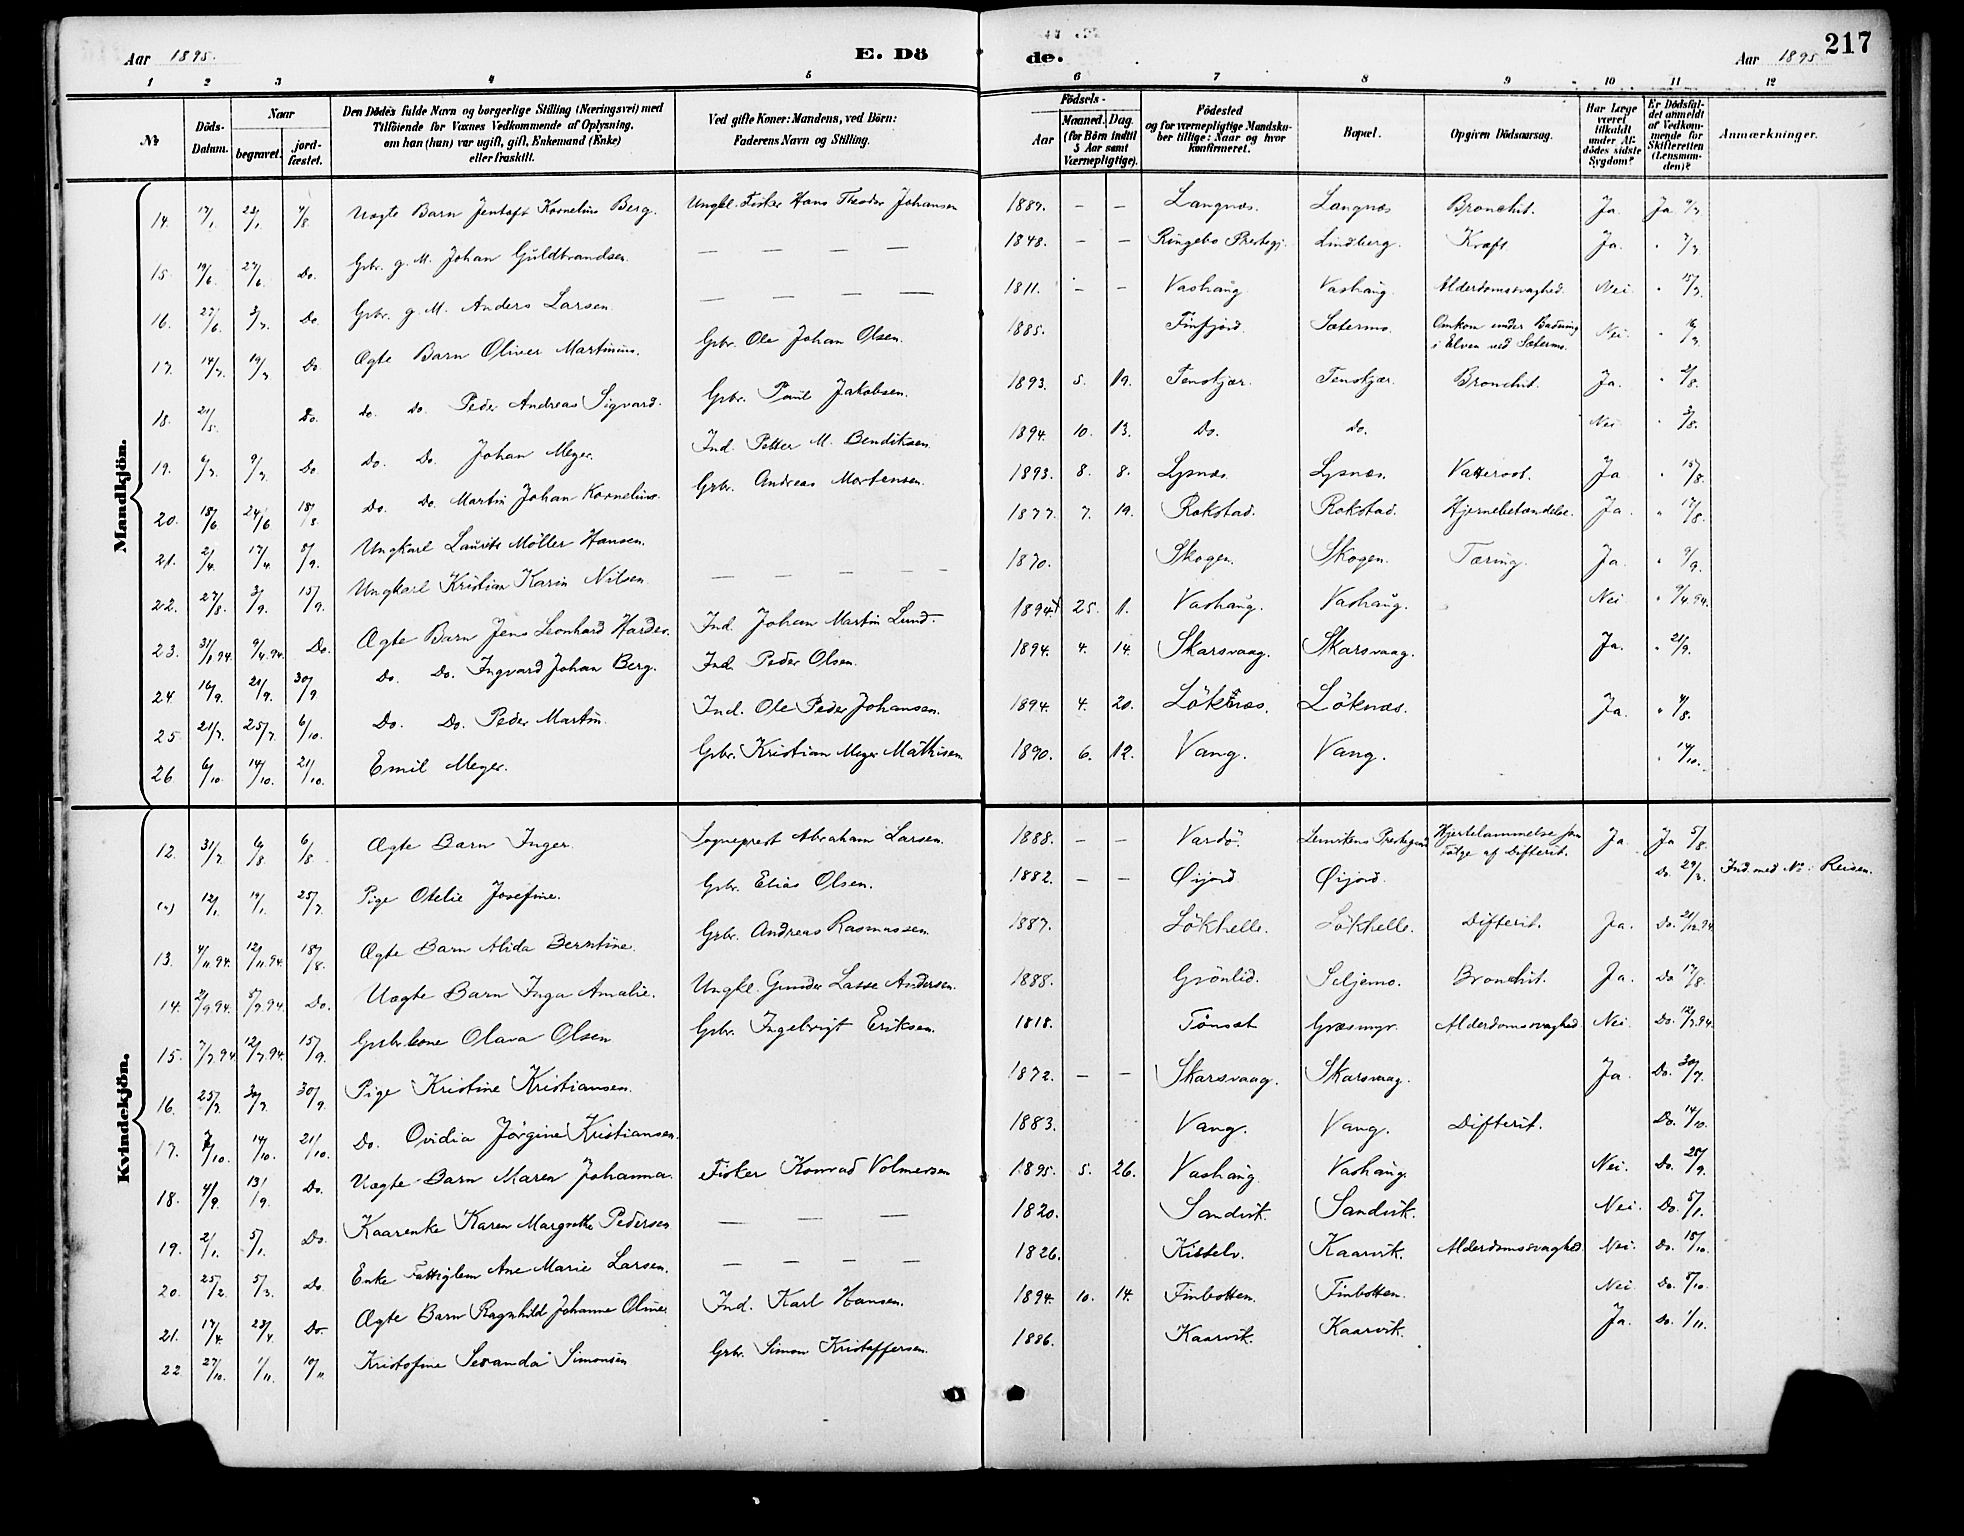 Aar 1895. E. Dö de. Aar 1895 217
1 2 3 4 5 6 7 8 9 10 11 12
№ Döds-Datum. Naar begravet. jord-fæstet. Den Dödes fulde Navn og borgerlige Stilling (Næringsvei) med Tilföiende for Voxnes Vedkommende af Oplysning, om han (hun) var ugift, gift, Enkemand (Enke) eller fraskilt. Ved gifte Koner: Mandens, ved Börn: Faderens Navn og Stilling. Födsels- Aar Maaned. Dag. (for Börn indtil 5 Aar samt Værnepligtige). Födested og for værnepligtige Mandskaber tillige: Naar og hvor konfirmeret. Bopæl. Opgiven Dödsaarsag. Har Læge været tilkaldt under Afdödes sidste Sygdom? Er Dödsfaldet anmeldt af Vedkommende for Skifteretten (Lensmanden)? Anmærkninger.
Mandkjön.
14. 17/1 23/1 4/8 Uægte Barn Jentoft Kornelius Berg. Ungkl. Fisker Hans Theodor Johansen 1889. — — Langnæs. Langnæs Bronchit. Ja. Ja 9/7
15. 19/6 27/6 Do. Gbr. g. M. Johan Guldbrandsen. — — — — 1848. — — Ringebo Prestegj. Lindberg. Kræft Ja. " 7/7
16. 27/6 3/7. Do. Gbr. g. M. Anders Larsen. — — — — 1811. — — Vashaug Vashaug. Alderdomssvaghed. Nei. " 15/7.
17. 14/7. 19/7 Do. Ægte Barn Oliver Martinius. Gbr. Ole Johan Olsen. 1885. Finfjord. Sætermo. Omkom under Badning i Elven ved Sætermo. Nei. " 16/7
18. 21/5. Do. do. do. Peder Andreas Sigvard. Gbr. Paul Jakobsen. 1893. 5. 19. Tenskjær. Tenskjær. Bronchit. Ja. " 2/8.
19. 6/7. 9/7 Do. Do. Do. Johan Meyer. Ind. Petter M. Bendiksen. 1894. 10. 13. Do. do. Nei " 3/8.
20. 18/6. 24/6 18/8. Do. Do. Martin Johan Kornelius. Gbr. Andreas Mortensen. 1893. 8. 8. Lysnæs. Lysnæs. Vattersot. Ja " 15/8.
21. 2/4. 17/4 8/9. Ungkarl Laurits Möller Hansen. 1877. 7. 19. Rokstad. Rokstad. Hjernebetændelse. Ja. " 17/8.
22. 27/8. 3/9. 15/9. Ungkarl Kristian Karin Nilsen. — — — — — 1870. Skogen. Skogen. Tæring. Ja. " 9/9.
23. 31/1 94. 9/4.94. Do. Ægte Barn Jens Leonhard Harder. Ind. Johan Martin Lund. 1894 25. 1. Vashaug. Vashaug. Nei " 9/4.94.
24. 16/9. 21/9. 30/9 Do. Do. Ingvard Johan Berg. Ind. Peder Olsen. 1894. 4. 14. Skarsvaag. Skarsvaag. Ja. " 21/9.
25. 21/7. 25/7. 6/10. Do. Do. Peder Martin. Ind. Ole Peder Johansen. 1894. 4. 20. Löknæs. Löknæs. Ja. " 4/8.
26 6/10 14/10. 21/10. Emil Meyer. Gbr. Kristian Meyer Mathisen 1890. 6. 12. Vang. Vang. " 14/10.
Kvindekjön.
12. 31/7. 6/8. 6/8. Ægte Barn Inger. Sogneprest Abraham Larsen. 1888. — — Vardö. Lenvikens Prestegaard Hjertelammelse som Fölge af Difterit. Ja. Ja 5/8.
12/1. 19/1. 25/7. Pige Otelie Josefine. Gbr. Elias Olsen. 1882. — — Öijord Öijord. Do. 29/3. Ind. med No: Reisen.
13. 4/11.94. 12/11.94 18/8. Ægte Barn Alida Berntine. Gbr. Andreas Rasmussen 1887. Lökhelle. Lökhelle. Difterit. Ja. Do. 21/12.94
14. 2/9.94. 5/9.94 Do. Uægte Barn Inga Amalie. Ungkl. Gunder Lasse Andersen. 1888. Grönlid. Seljemo. Bronchit. Ja. Do 17/8.
15. 7/7.94. 12/7.94. 15/9. Gbr.kone Olava Olsen Gbr. Ingebrigt Eriksen. 1818. Tönset Græsmyr. Alderdomssvaghed Nei. Do. 12/7.94.
16. 25/7. 30/7. 30/9. Pige Kristine Kristiansen. 1872. — — Skarsvaag. Skarsvaag. Ja. Do. 30/7.
17. 7/10. 14/10. 21/10. Do. Ovidia Jörgine Kristiansen. 1883. Vang. Vang. Difterit. Do. 14/10.
18. 4/9. 13/9. Do. Uægte Barn Maren Johanna. Fisker Konrad Volmersen 1895. 5. 26. Vashaug. Vashaug. Nei. Do. 25/9.
19. 2/1. 5/1. Do. Kaarenke Karen Margrethe Pedersen — — — 1820. Sandvik. Sandvik. Nei. Do. 5/1.
20. 25/2. 5/3. Do. Enke Fattiglem Ane Marie Larsen. — — — — 1826. Kisselv. Kaarvik. Alderdomssvaghed. Nei. Do. 15/10.
21. 17/4. 23/4. Do. Ægte Barn Ragnhild Johanne Oline. Ind. Karl Hansen. 1894. 10. 14. Finbotten. Finbotten. Nei Do. 5/10.
22 27/10. 1/11. 10/11 Kristofine Seranda Simonsen Gbr. Simon Kristoffersen. 1886. Kaarvik. Kaarvik. Ja. Do. 1/11.